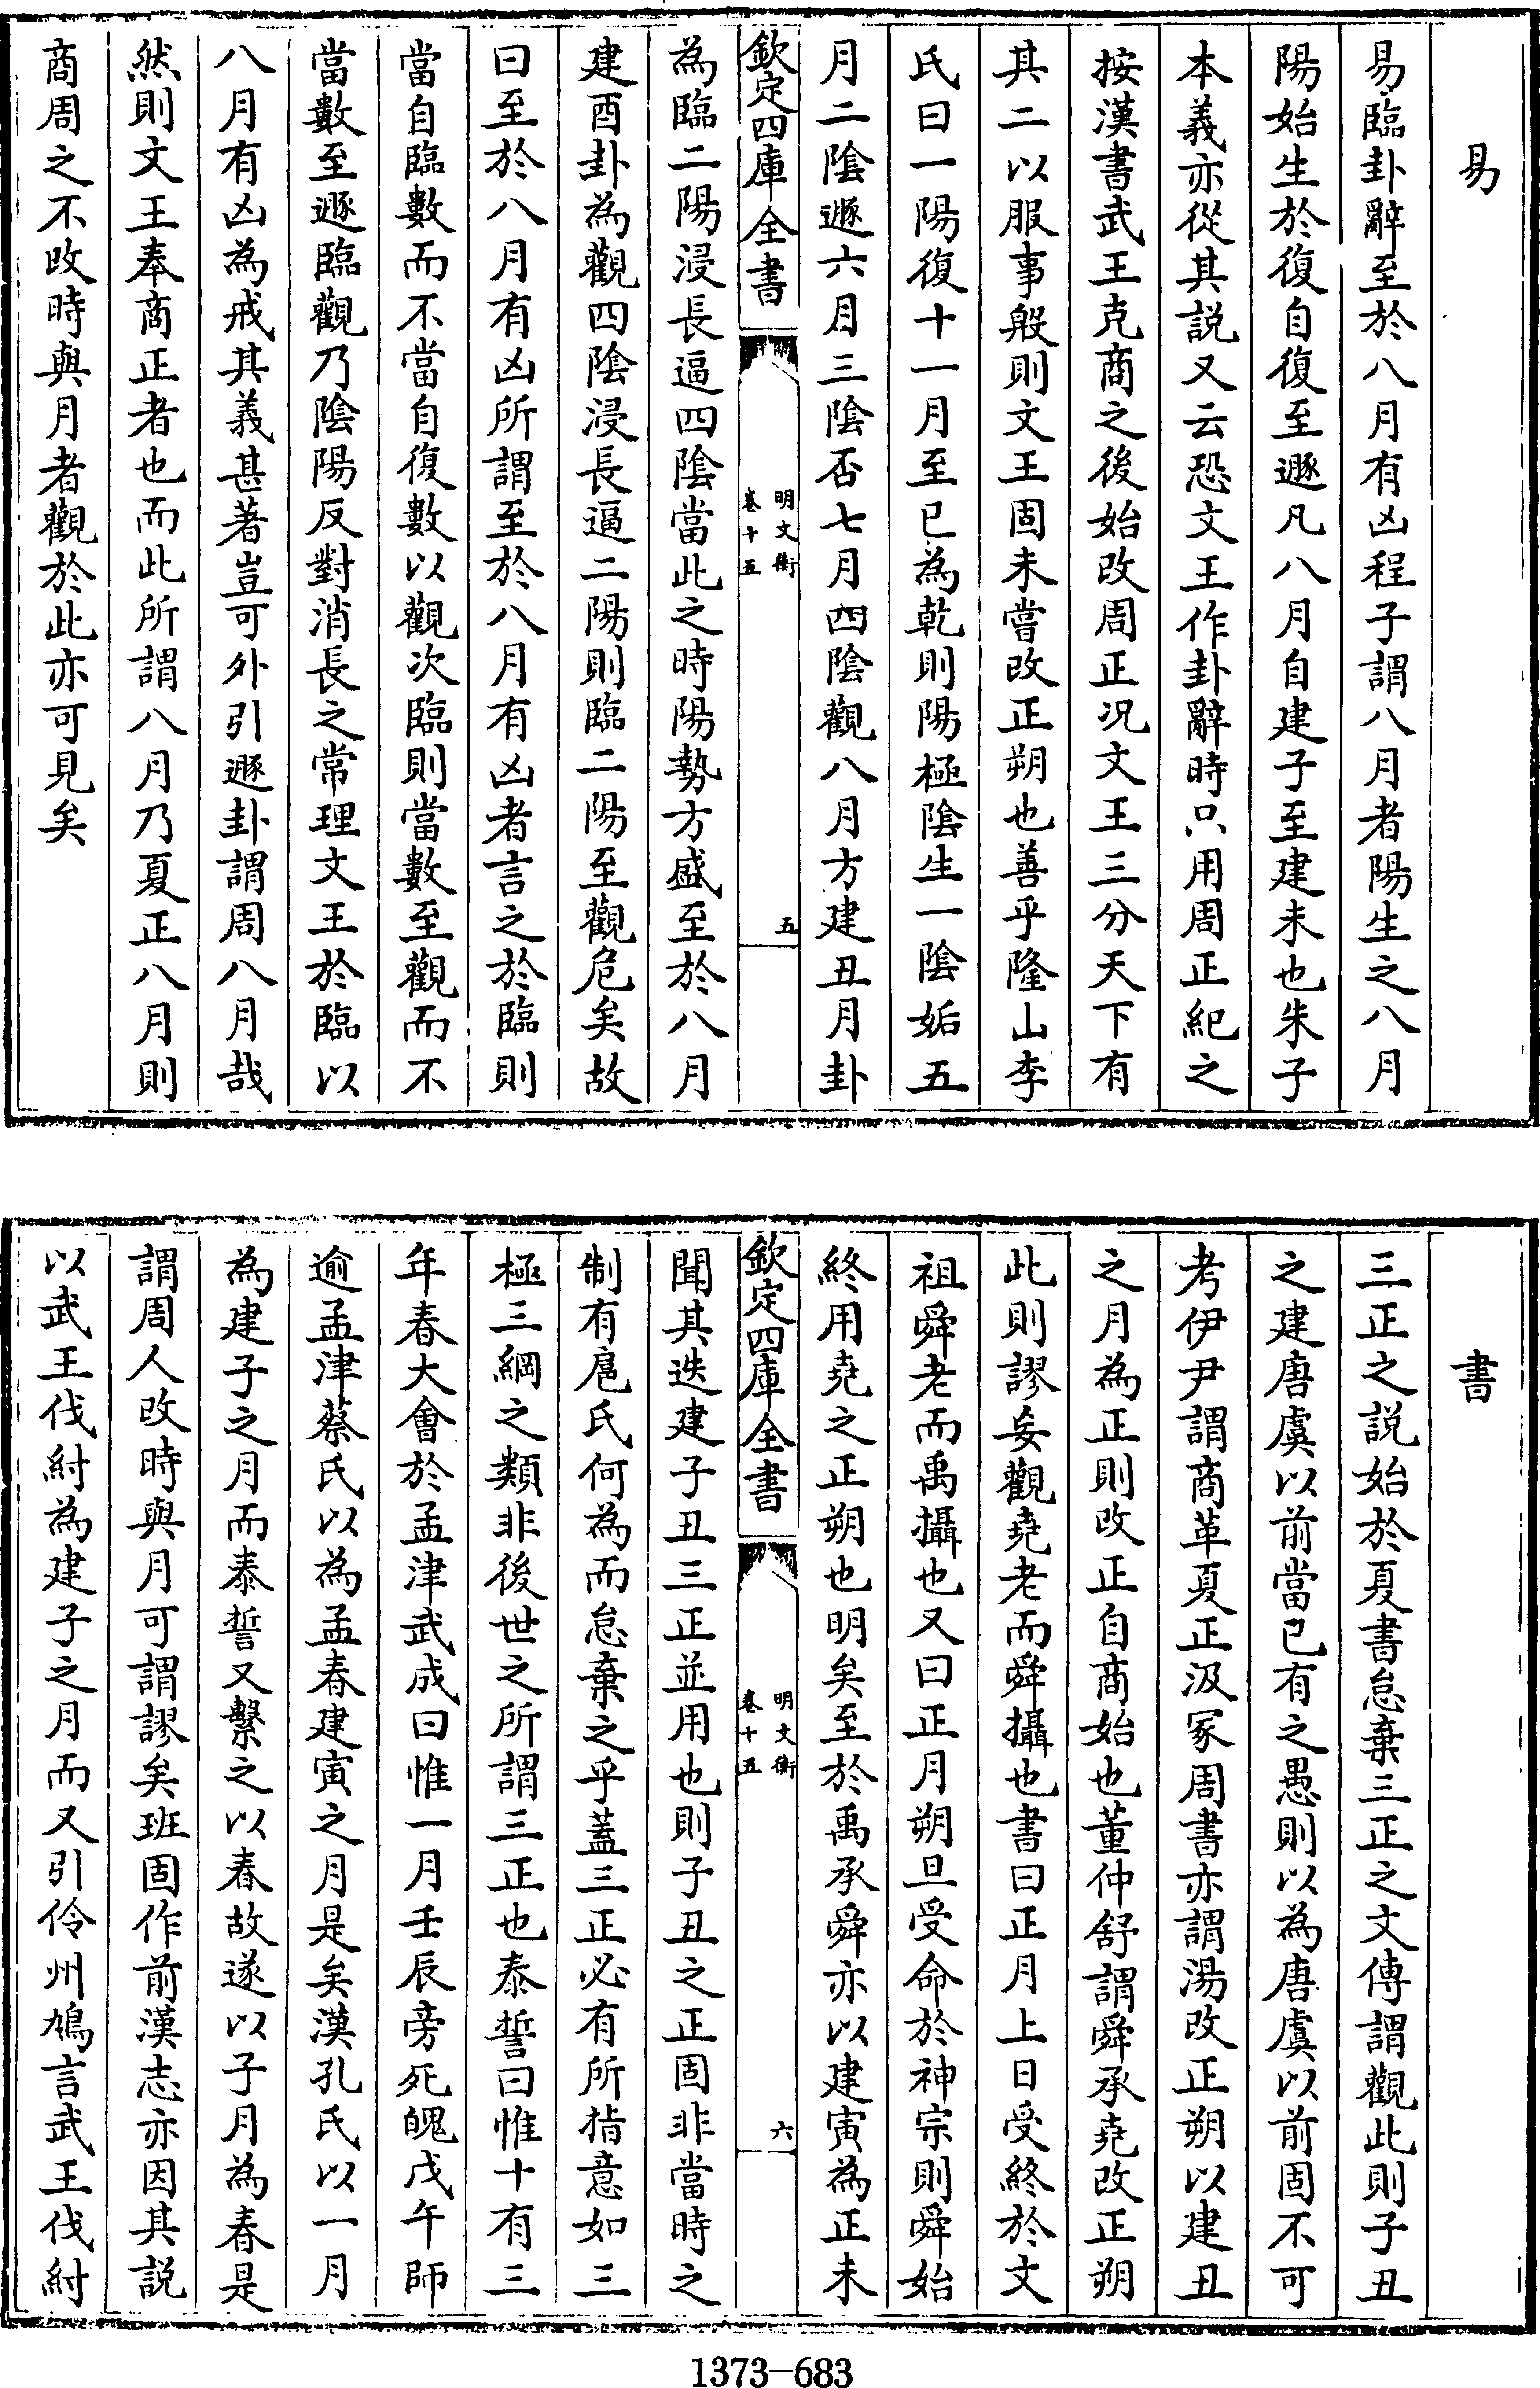 易
易臨卦辭至於八月有凶程子謂八月者陽生之八月
陽始生於復自復至遯凡八月自建子至建未也朱子
本義亦從其説又云恐文王作卦辭時只用周正紀之
按漢書武王克商之後始改周正况文王三分天下有
其二以服事殷則文王固未嘗改正朔也善乎隆山李
氏曰一陽復十一月至巳為乾則陽極陰生一陰姤五
月二陰遯六月三陰否七月四陰觀八月方建丑月卦
欽定四庫全書
明文衡
卷十五
五
為臨二陽浸長逼四陰當此之時陽勢方盛至於八月
建酉卦為觀四陰浸長逼二陽則臨二陽至觀危矣故
曰至於八月有凶所謂至於八月有凶者言之於臨則
當自臨數而不當自復數以觀次臨則當數至觀而不
當數至遯臨觀乃陰陽反對消長之常理文王於臨以
八月有凶為戒其義甚著豈可外引遯卦謂周八月哉
然則文王奉商正者也而此所謂八月乃夏正八月則
商周之不改時與月者觀於此亦可見矣
書
三正之説始於夏書怠棄三正之文傳謂觀此則子丑
之建唐虞以前當已有之愚則以為唐虞以前固不可
考伊尹謂商革夏正汲冢周書亦謂湯改正朔以建丑
之月為正則改正自商始也董仲舒謂舜承堯改正朔
此則謬妄觀堯老而舜攝也書曰正月上日受終於文
祖舜老而禹攝也又曰正月朔旦受命於神宗則舜始
終用堯之正朔也明矣至於禹承舜亦以建寅為正未
欽定四庫全書
明文衡
卷十五
六
聞其迭建子丑三正並用也則子丑之正固非當時之
制有扈氏何為而怠棄之乎蓋三正必有所指意如三
極三綱之類非後世之所謂三正也泰誓曰惟十有三
年春大會於孟津武成曰惟一月壬辰旁死魄戊午師
逾孟津蔡氏以為孟春建寅之月是矣漢孔氏以一月
為建子之月而泰誓又繫之以春故遂以子月為春是
謂周人改時與月可謂謬矣班固作前漢志亦因其説
以武王伐紂為建子之月而又引伶州鳩言武王伐紂
1373-683